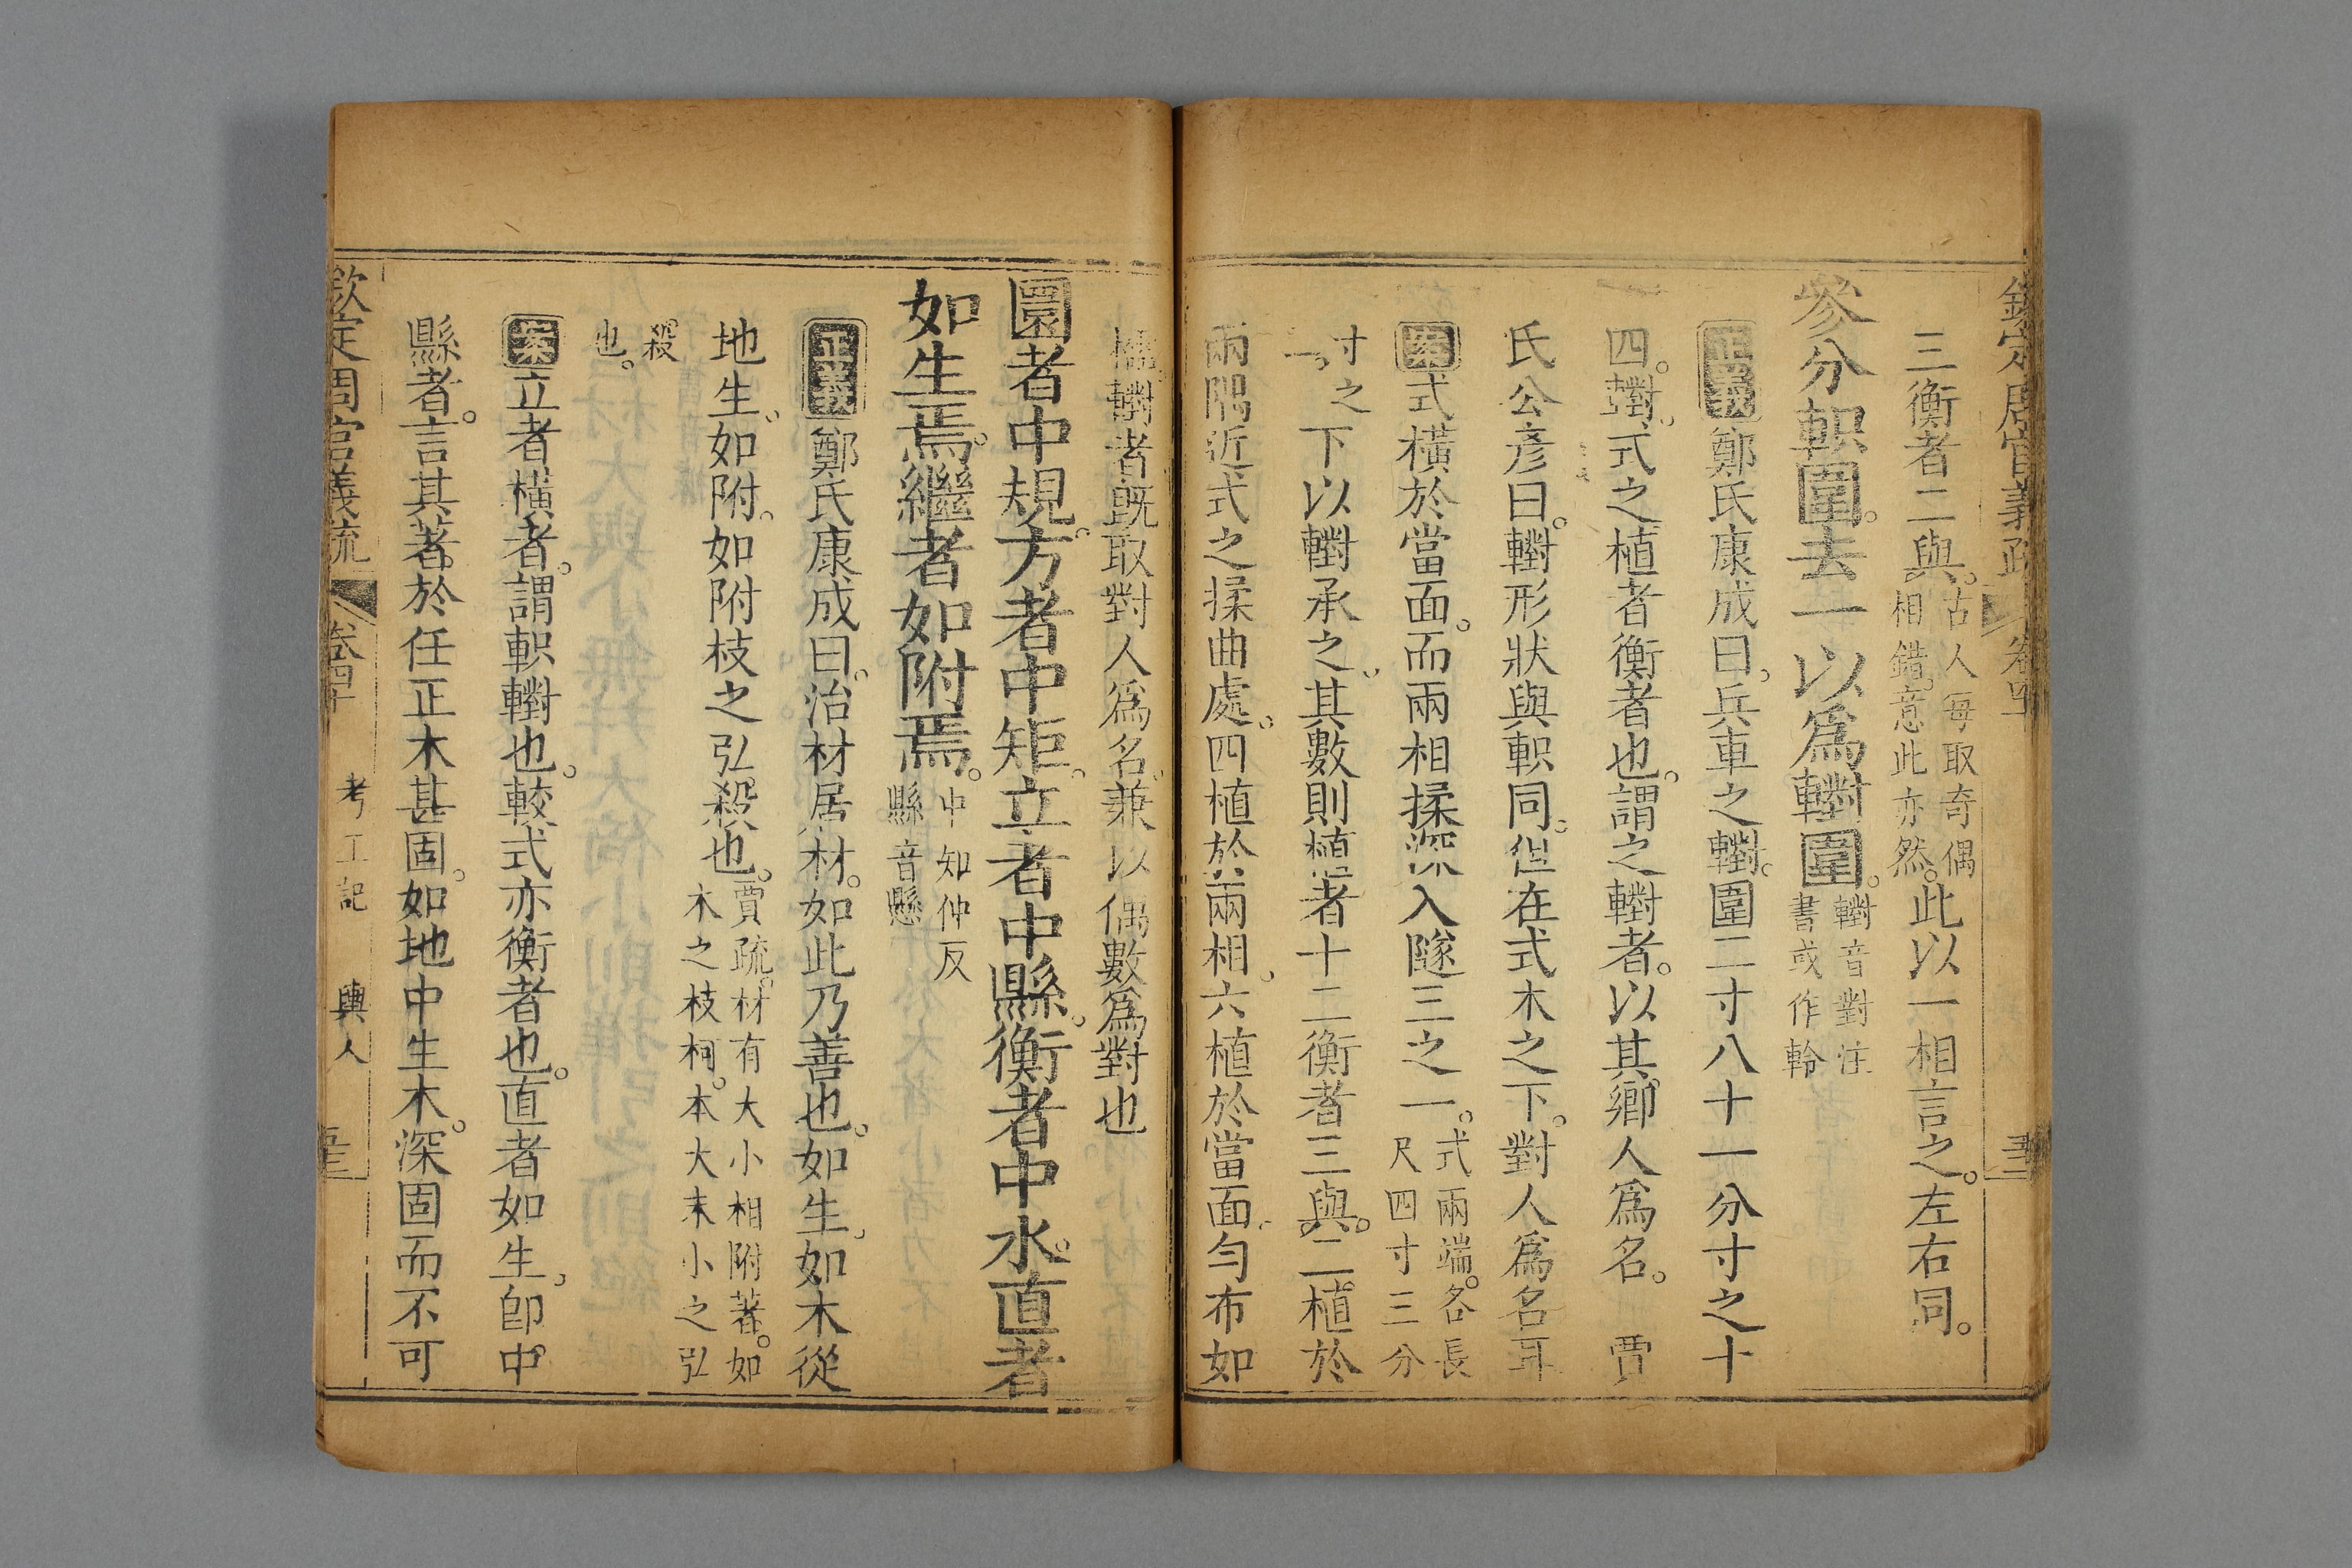 三衡者二與古人每取奇偶相錯意此亦然此以一相言之左右同
參分軹圍去一以爲轛圍轛音對注書或作軨
正義鄭氏康成曰兵車之轛圍二寸八十一分寸之十
四轛式之植者衡者也謂之轛者以其鄉人爲名 賈
氏公彥曰轛形狀與軹同但在式木之下對人爲名耳
案式橫於當面而兩相揉深入隧三之一式兩端各長尺四寸三分
寸之一下以轛承之其數則植者十二衡者三與二植於
兩隅近式之揉曲處四植於兩相六植於當面勻布如
轛者旣取對人爲名兼以偶數爲對也
圜者中規方者中矩立者中縣衡者中水直者
如生焉繼者如附焉中知仲反縣音懸
正義鄭氏康成曰治材居材如此乃善也如生如木從
地生如附如附枝之弘殺也賈疏材有大小相附著如木之枝柯本大末小之弘
殺也
案立者橫者謂軹轛也較式亦衡者也直者如生卽中
縣者言其著於任正木甚固如地中生木深固而不可
欽定周官義疏 卷四十 考工記 輿人